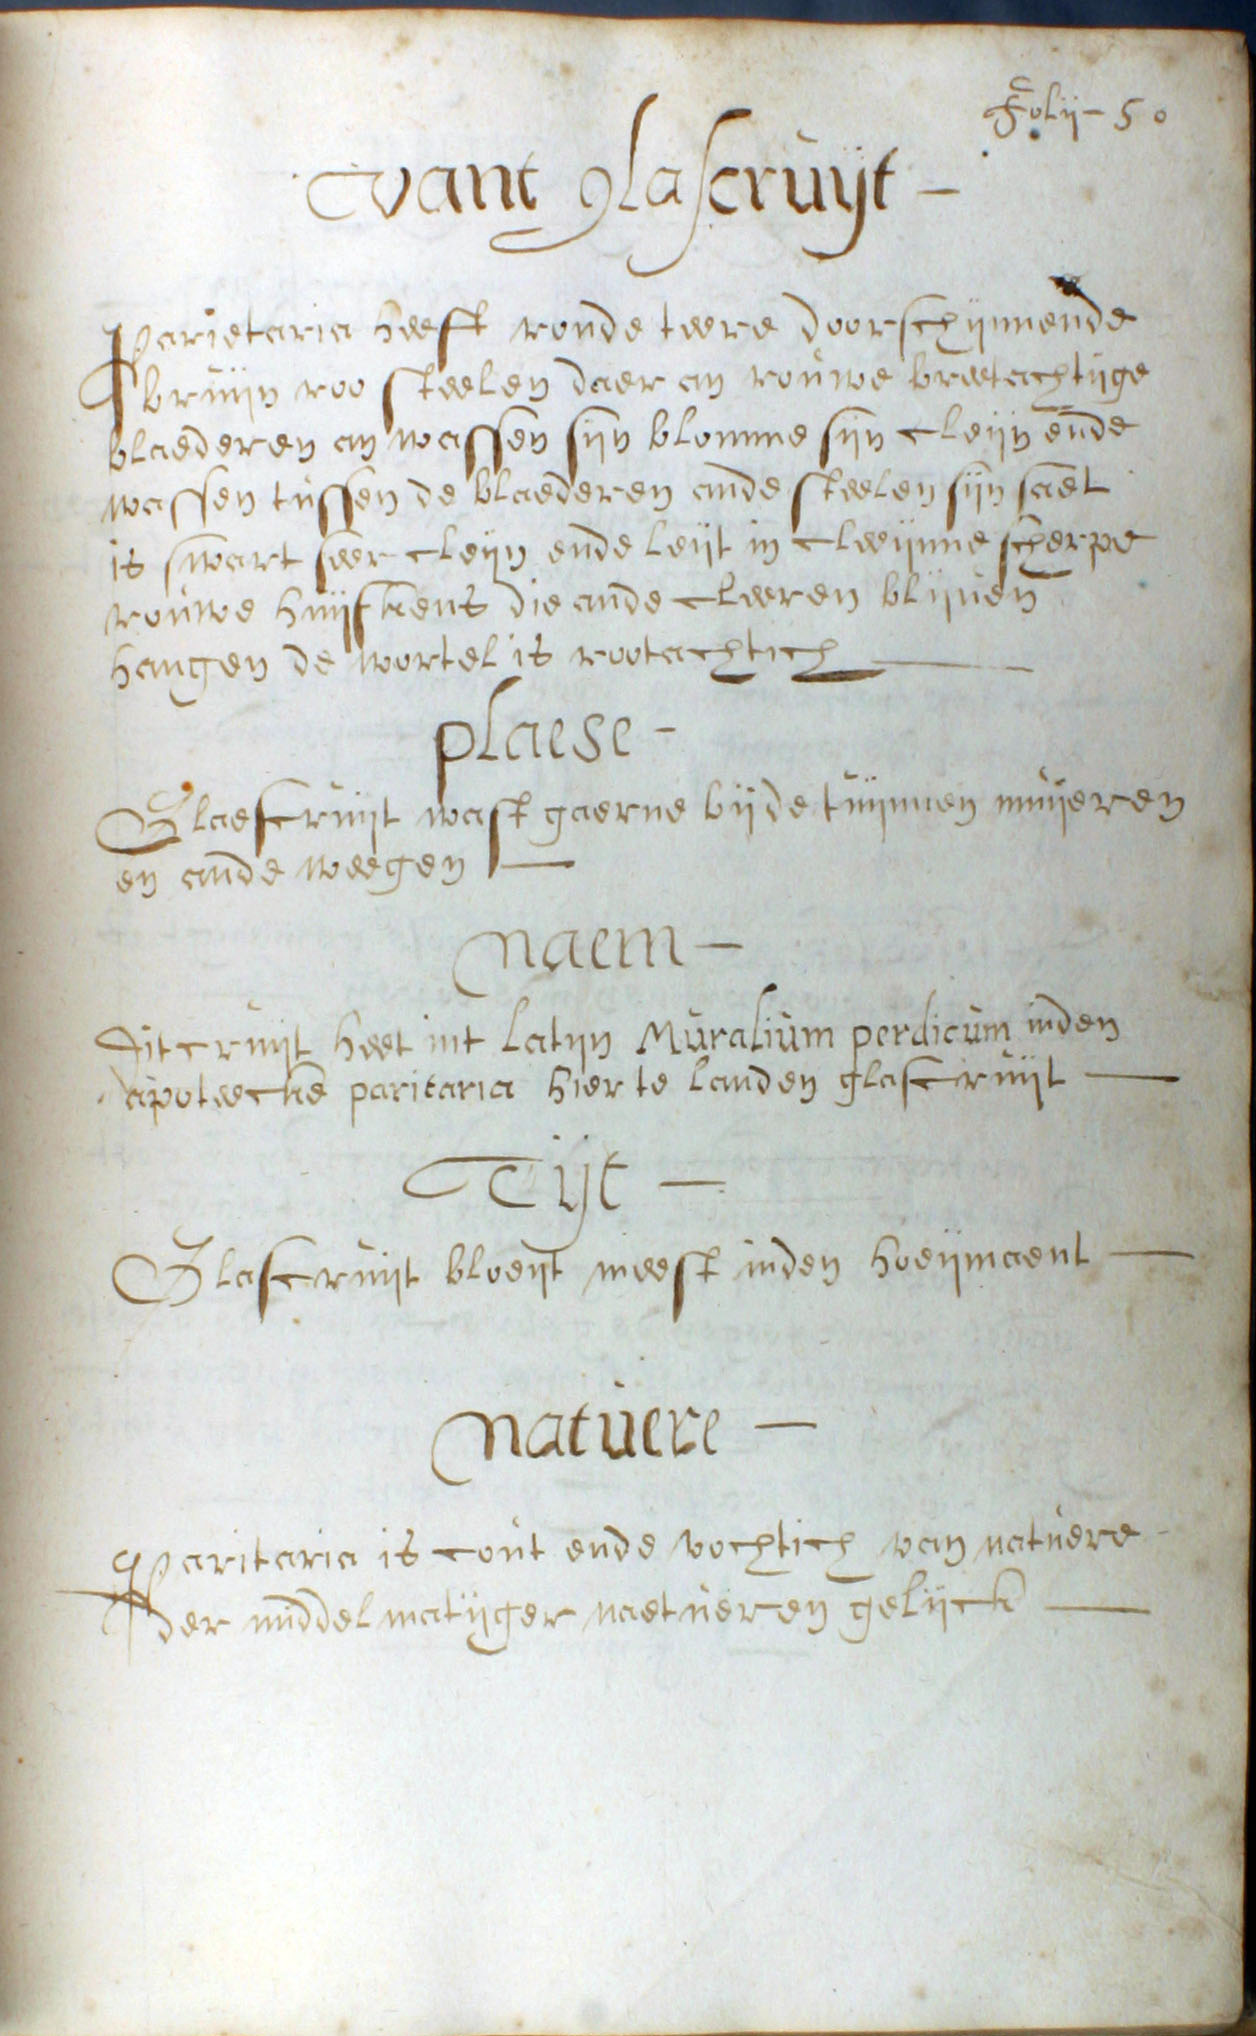 Folij - 50
vant glascruijt -
Parietaria heeft ronde teere doorschijnnende
bruijn roo steelen daer an rouwe breetachtijge
blaederen an wassen sijn blomme sijn cleijn ende
wassen tussen de blaederen ande steelen sijn saet
is swart seer cleijn ende leijt in cleeijnne scherpe
rouwe huijskens die ande cleeren blijuen
hangen de wortel is rootachtich
plaese -
Glaescruijt wast gaerne bijde tuijnnen muijeren
en ande weegen
naem -
Dit cruijt heet int latijn Muralium perdicum inden
apoteecke paritaria hier te landen glascruijt
Tijt -
Glascruijt bloeijt meest inden hoeijmaent
natuere -
Paritaria is cout ende vochtich van natuere
der middelmatijger naetueren gelijck